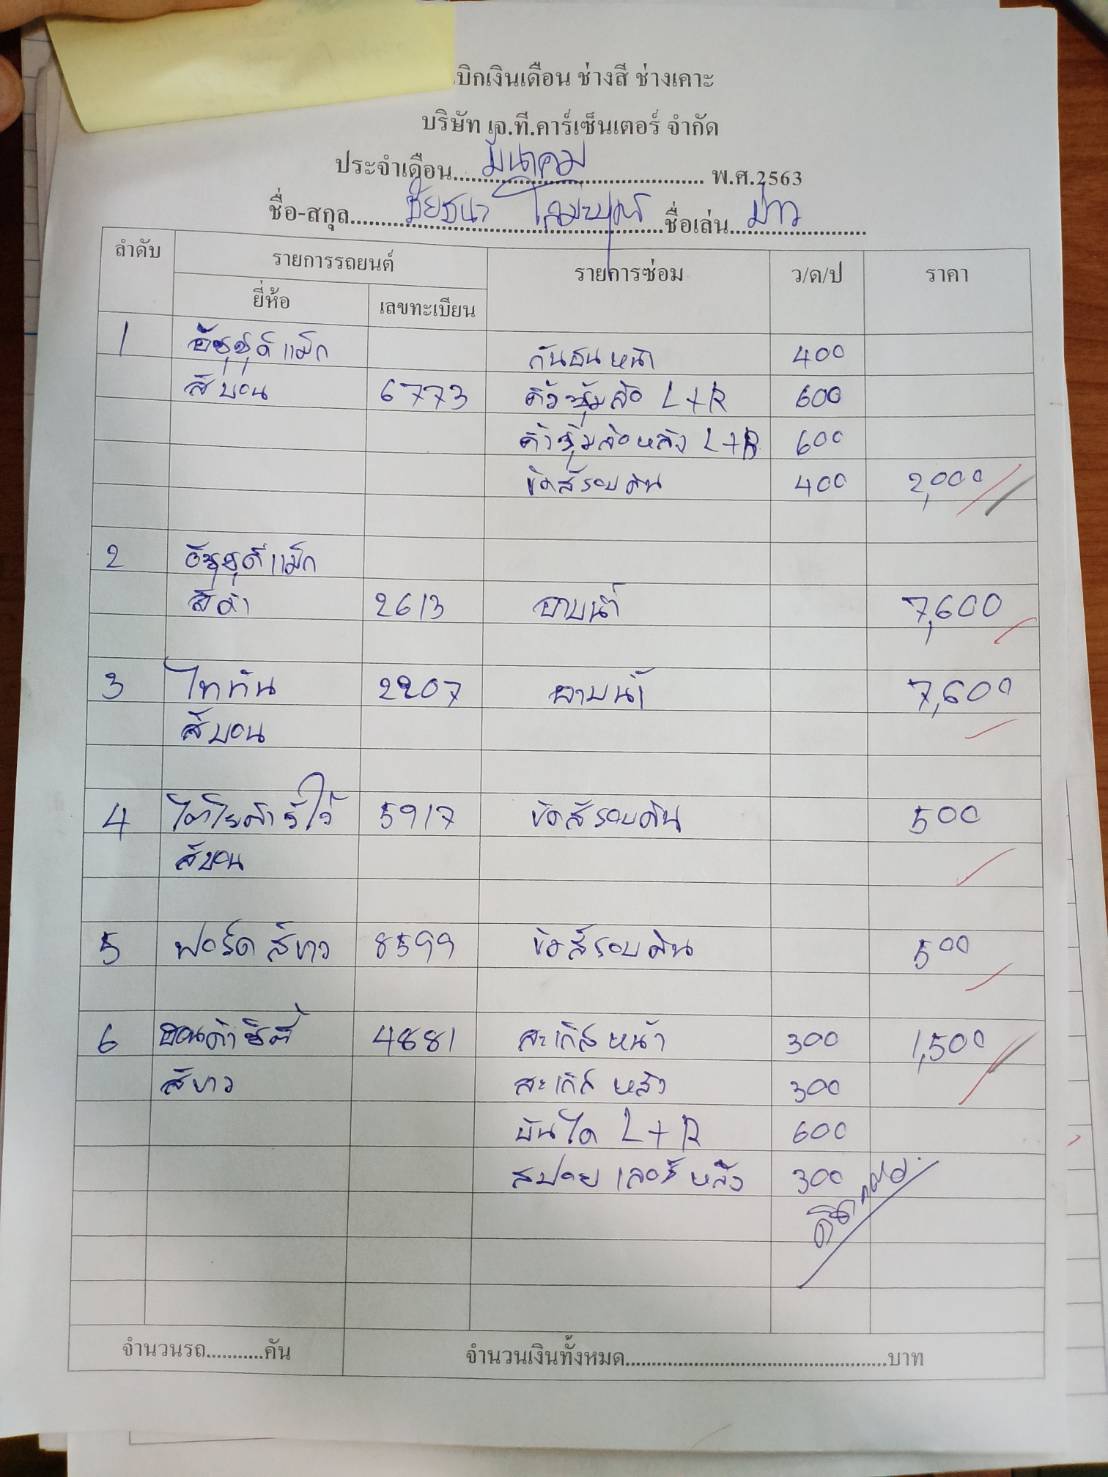 เบิกเงินเดือน ช่างสี ช่างเคาะ
บริษัท เจ.ที.คาร์เซ็นเตอร์ จำกัด
ประจำเดือน.....มีนาคม..... พ.ศ.2563
ชื่อ-สกุล.....ชัยชนา.....ชื่อเล่น.....
ลำดับ รายการรถยนต์ รายการซ่อม ว/ด/ป ราคา
ยี่ห้อ เลขทะเบียน
1 อีซูซุดีแม็ก กันชนหน้า 400
สีบอน 6773 คิ้วซุ้มล้อ L+R 600
คิ้วซุ้มล้อหลัง L+R 600
ขัดสีรอบคัน 400 2,000
2 อีซูซุดีแม็ก
สีดำ 2613 อาบน้ำ 7,600
3 ไททัน 2207 อาบน้ำ 7,600
สีบอน
4 โตโยต้าวีโว้ 5917 ขัดสีรอบคัน 500
สีบอน
5 ฟอร์ด สีขาว 8599 ขัดสีรอบคัน 500
6 ฮอนด้าซิตี้ 4881 สะเกิ๊ตหน้า 300 1,500
สีขาว สะเกิ๊ต หลัง 300
บันได L+R 600
สปอยเลอร์หลัง 300
จำนวนรถ...........คัน จำนวนเงินทั้งหมด.............................................บาท